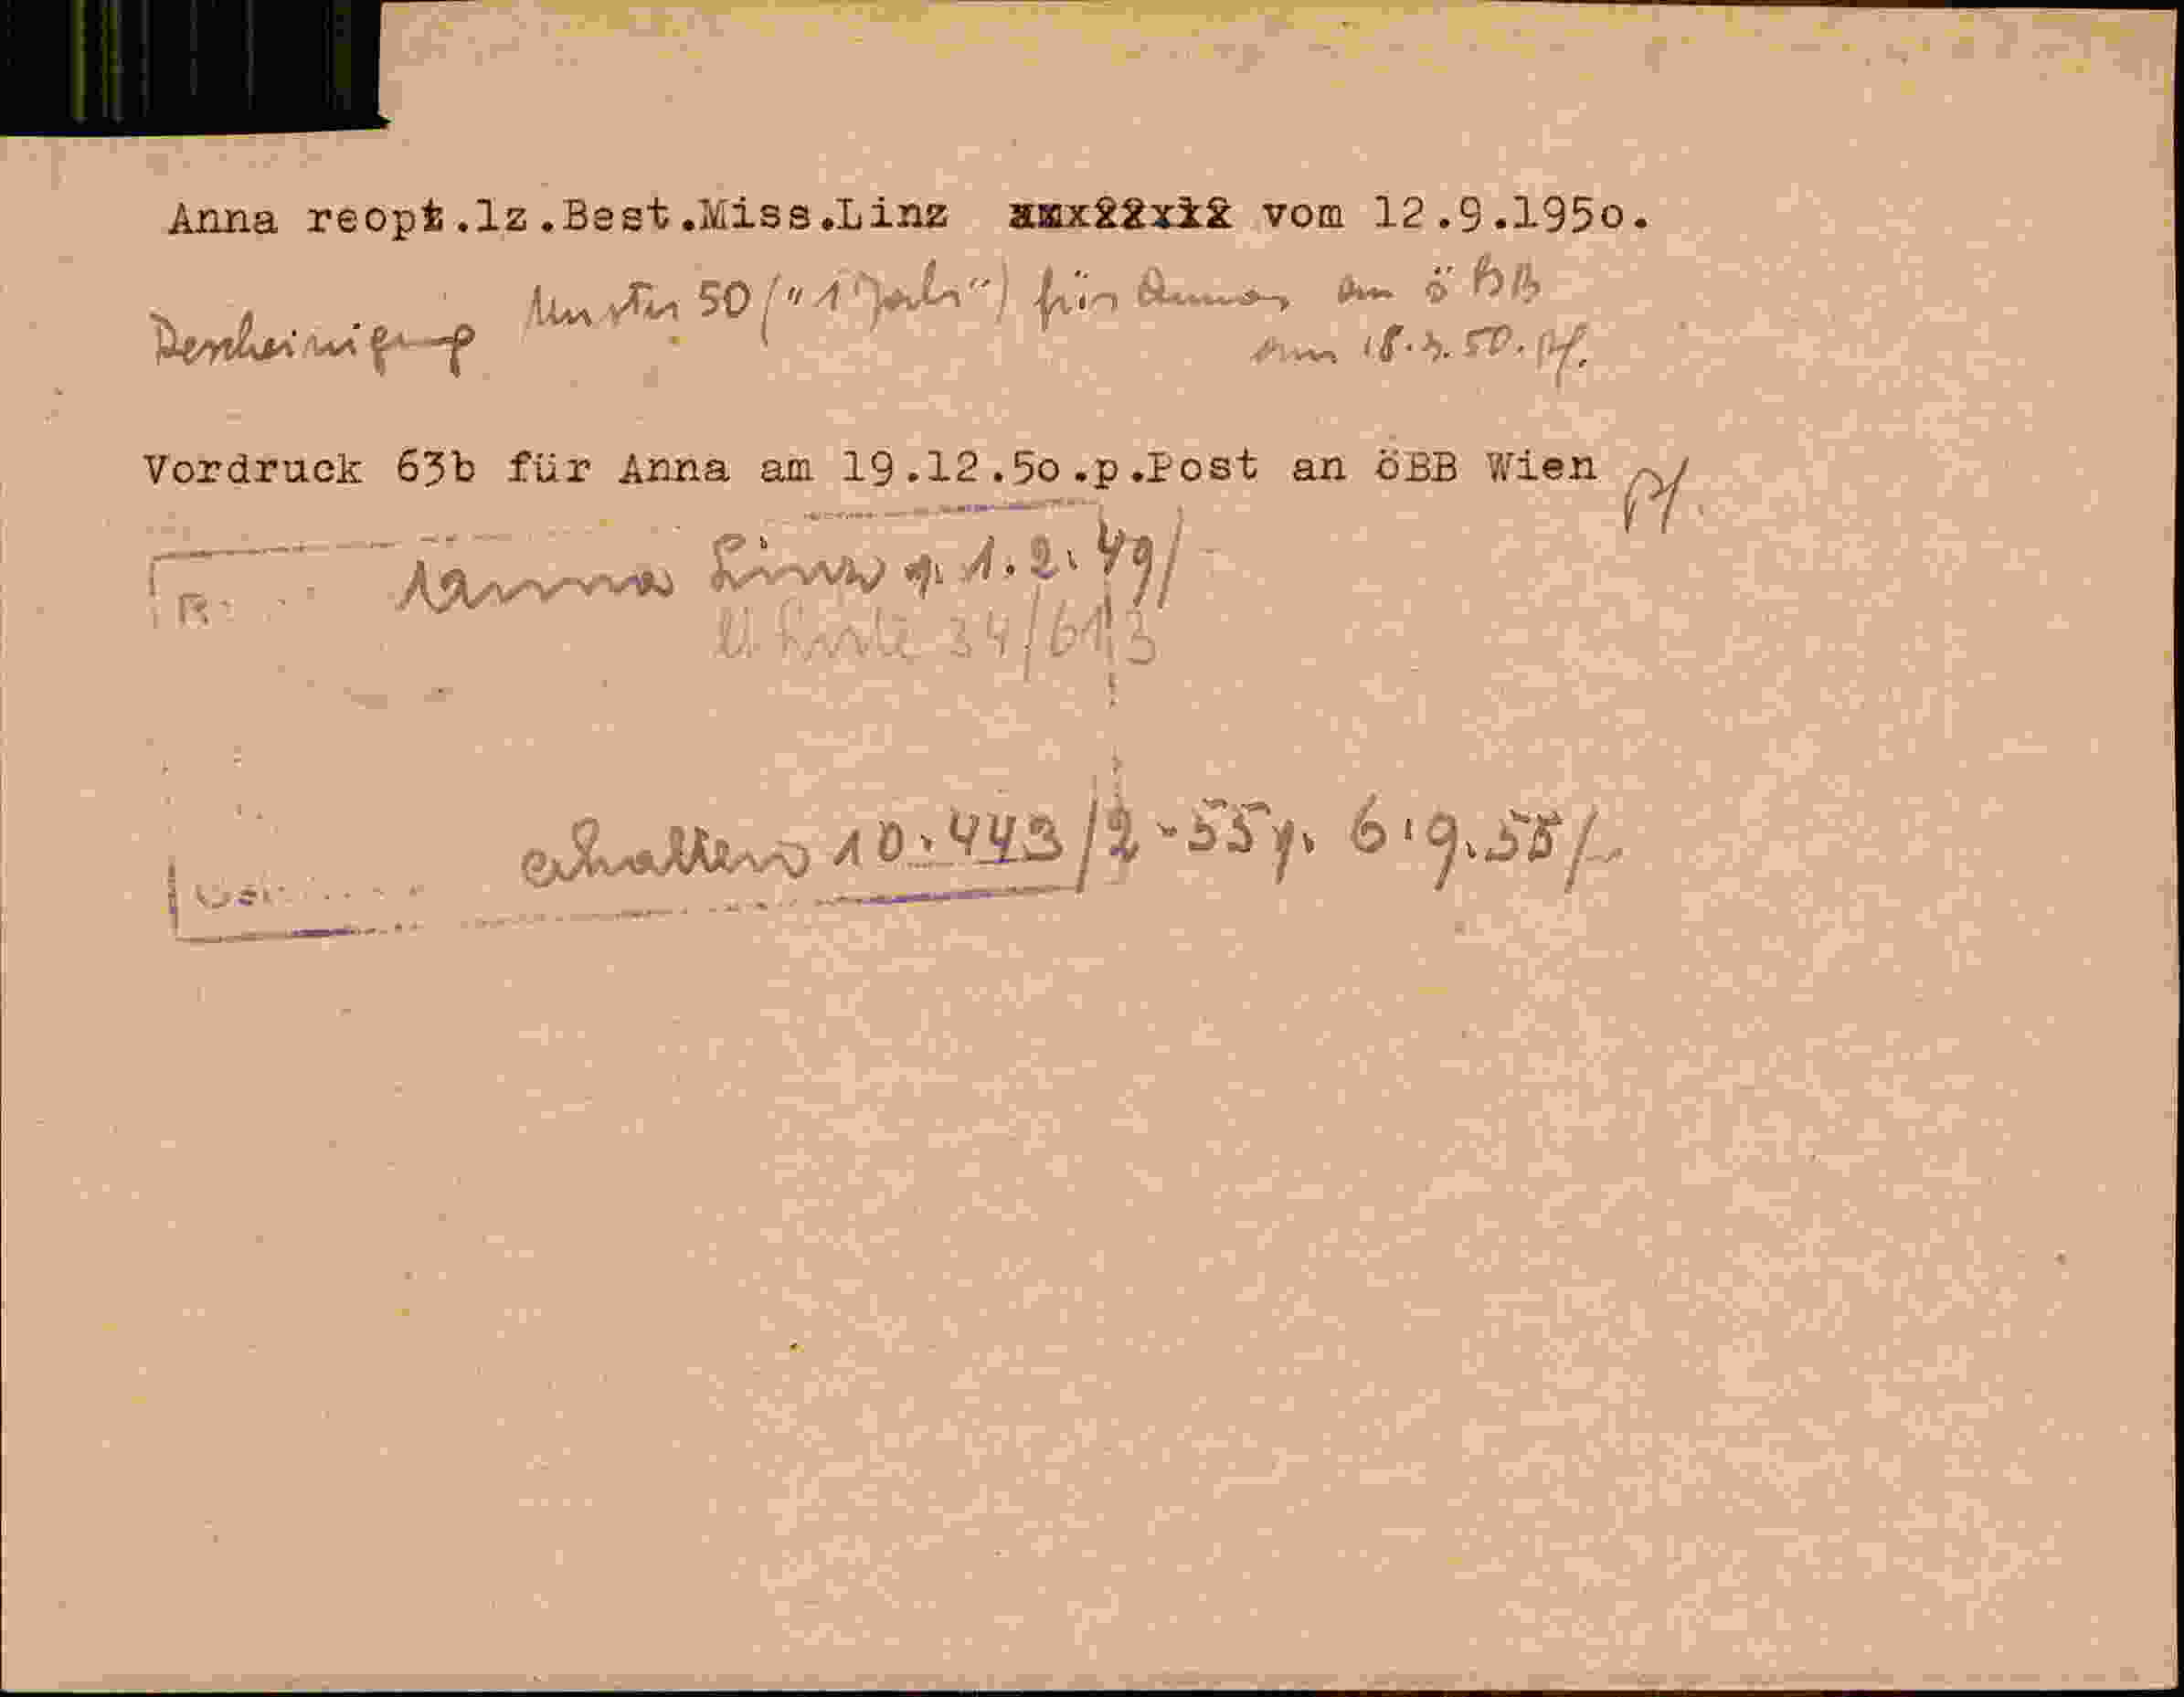 Anna reopt.lz.Best.Miss.Linz vom 12.9.1950.
Bescheinigung Muster 50 ("1 Jahr") für Anna an öBB
am 18.9.50.
Vordruck 63b für Anna am 19.12.50.p.Post an öBB Wien
Anna Linz v. 1.2.49/
Liste 34/613
erhalten 10.443/2-55 v. 6.9.55/